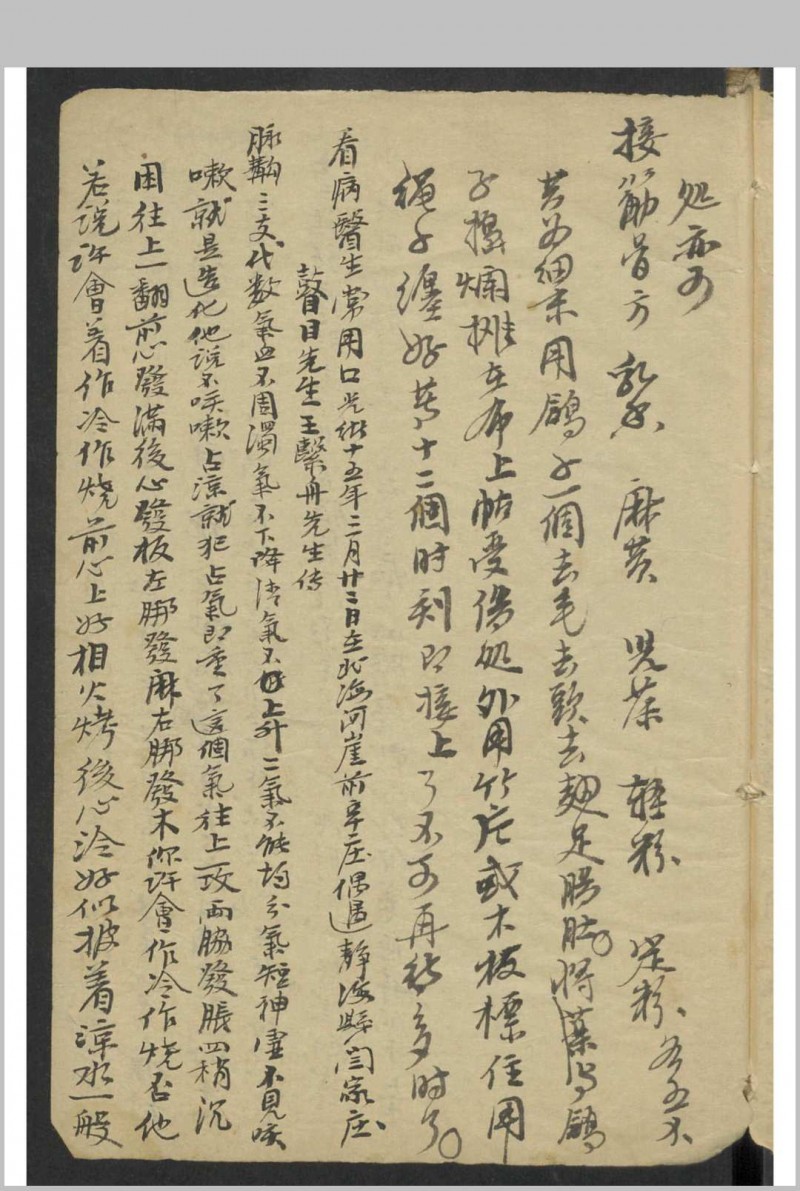 処亦可
接筋骨方 乳香 麻黄 児茶 軽粉 定粉 各五分
共为細末用鴿子一個去毛去頭去翅足腸肚将薬与鴿
子搗爛摊在布上帖受傷処外用竹片或木板標住用
绳子纏好若十二個时刻即接上了不可再待多时了
看病醫生常用口光緒十五年二月廿二日在北海河崖前辛庄偶遇静海縣闫家庄
瞽目先生王繫舟先生传
脉鞫三支代数氣血不周濁氣不下降清氣不上升二氣不能均分氣短神虚不見咳
嗽就是造化他説不咳嗽占涼就犯占氣即重了這個氣往上一攻兩脇發脹四稍沉
困往上一翻前心發滿後心發板左脚發麻右脚發木你許會作冷作烧否他
若説許會着作冷作烧前心上好相火烤後心冷好似披着涼水一般